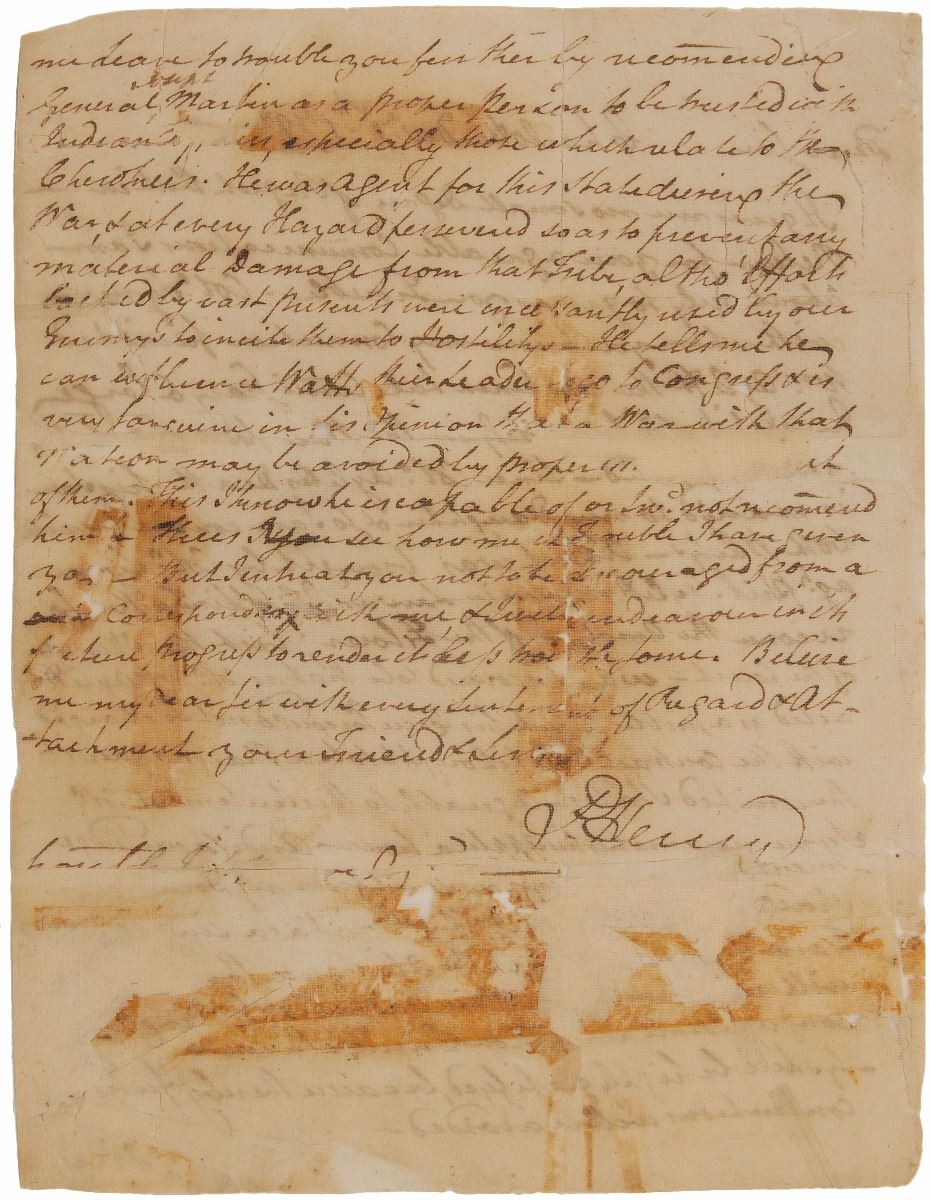 me Leave to trouble you further by recomending
General Martin as a proper Person to be trusted with
Indian in, especially those which relate to the
Cherokees. He was Agent for this State during the
War, & at every Hazard persevered so as to prevent any
material Damage from that Tribe, altho' Efforts
backed by vast presents were incessantly used by our
Enemys to incite them to Hostilitys — He tells me he
can influence Watts their Leader to go to Congress & is
very sanguine in his Opinion that a War with that
Nation may be avoided by proper
of them. This I know he is capable of or I wd. not recomend
him — Thus you see how much Trouble I have given
you — But I entreat you not to be discouraged from a
Corresponding with me & I will endeavour in its
future Progress to render it less troublesome. Believe
me my dear sir with every sentiment of Regard & At-
tachment your Friend &
P Henry